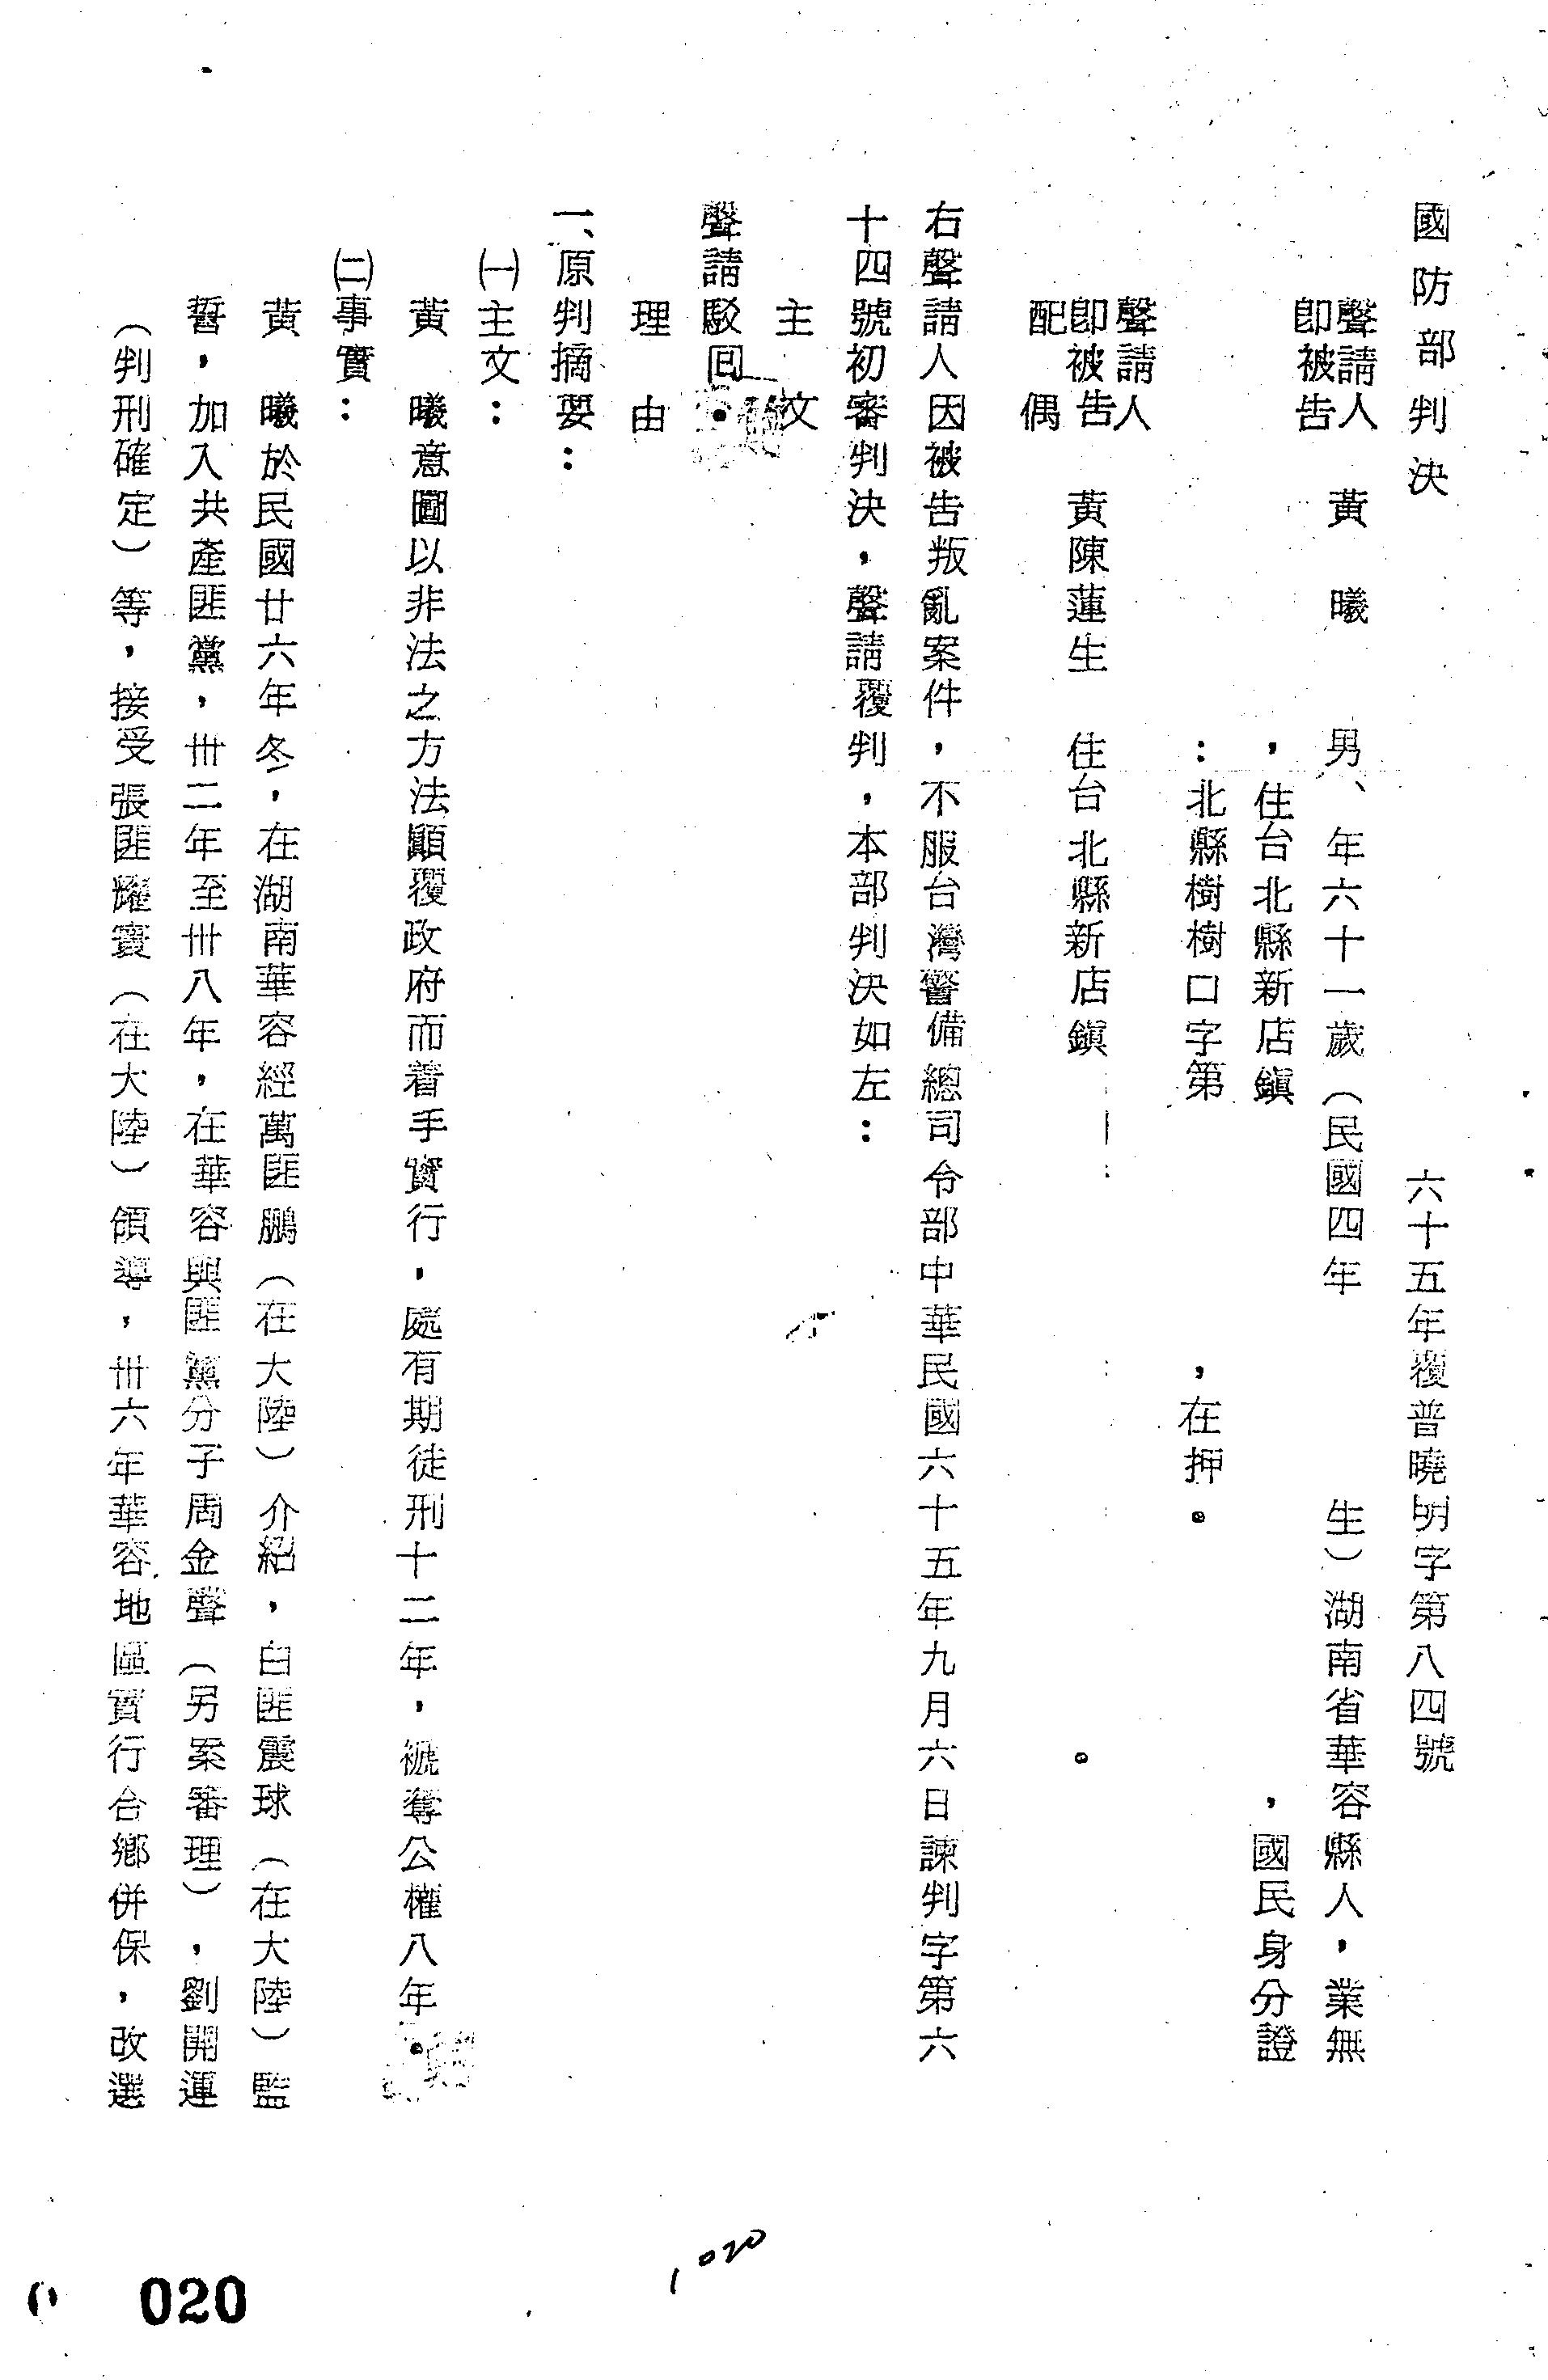 國防部判決
六十五年覆普曉明字第八四號
聲請人即被告 黃曦 男、年六十一歲（民國四年 生）湖南省華容縣人，業無
，住台北縣新店鎮 ，國民身分證
：北縣樹樹口字第 ，在押。
聲請人即被告配偶 黃陳蓮生 住台北縣新店鎮 。
右聲請人因被告叛亂案件，不服台灣警備總司令部中華民國六十五年九月六日諫判字第六
十四號初審判決，聲請覆判，本部判決如左：
主文
聲請駁回。
理由
一、原判摘要：
㈠主文：
黃曦意圖以非法之方法顛覆政府而着手實行，處有期徒刑十二年，褫奪公權八年。
㈡事實：
黃曦於民國廿六年冬，在湖南華容經萬匪鵬（在大陸）介紹，白匪震球（在大陸）監
誓，加入共產匪黨，卅二年至卅八年，在華容與匪黨分子周金聲（另案審理），劉開運
（判刑確定）等，接受張匪耀寰（在大陸）領導，卅六年華容地區實行合鄉併保，改選
020
020